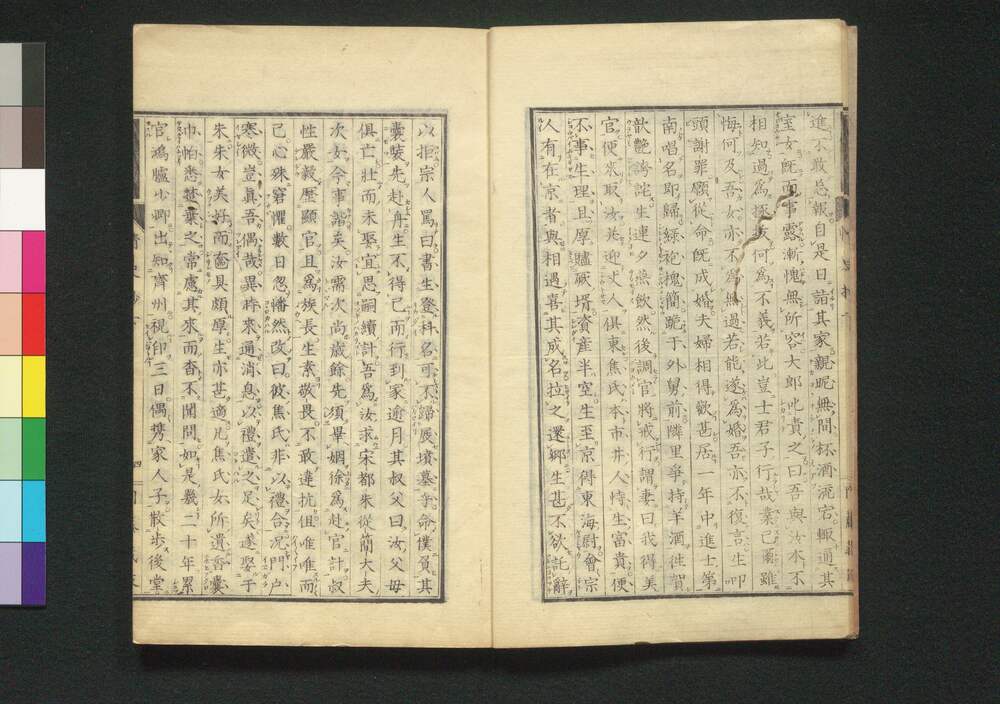 進不敢忘報自是日詣其家親昵無間杯酒流宕輒通其
室女既而事露漸愧無所容大郎叱責之曰吾與汝本不
相知過爲拯救何爲不義若此豈士君子行哉業已爾雖
悔何及吾女亦不爲無過若能遂爲婚吾亦不復言生叩
頭謝罪願從命既成婚夫婦相得歡甚居一年中進士第
南唱名即歸緑袍槐簡跪于外舅前隣里爭持羊酒徃賀
歆艶誇詫生連夕燕飲然後調官將戒行謂妻曰我得美
官便來取汝并迎丈人俱東焦氏本市井人恃生富貴便
不事生理且厚贐厥壻資産半空生至京得東海尉會宗
人有在京者與相遇喜其成名拉之還郷生甚不欲託辭
以拒宗人罵曰書生登科名可不歸展墳墓乎命僕負其
嚢裝先赴舟生不得已而行到家逾月其叔父曰汝父母
俱亡壯而未娶宜思嗣續計吾爲汝求宋都朱從簡大夫
次女今事諧矣汝需次尚歳餘先須畢姻徐爲赴官計叔
性嚴毅歴顯官且爲族長生素敬畏不敢違抗但唯唯而
已心殊窘懼數日忽幡然改曰彼焦氏非以禮合况門戸
寒微豈眞吾偶哉異時來通消息以禮遣之足矣遂娶于
朱朱女美好而奩具頗厚生亦甚適凡焦氏女所遺香嚢
巾帕悉焚棄之常慮其來而杳不聞問如是幾二十年累
官鴻臚少卿出知齊州視印三日偶携家人子散歩後堂
四